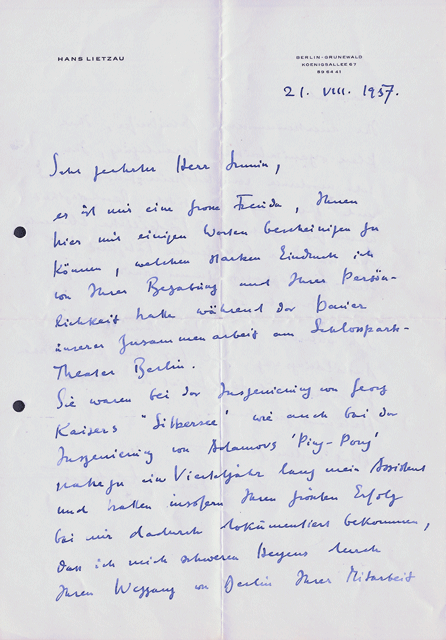 HANS LIETZAU
BERLIN-GRUNEWALD
KOENIGSALLEE 67
89 54 41
21. VIII. 1957.
Sehr geehrter Herr
es ist mir eine grosse Freude, Ihnen
hier mit einigen Worten bescheinigen zu
können, welchen starken Eindruck ich
von Ihrer Begabung und Ihrer Persön-
lichkeit hatte während der Dauer
unserer Zusammenarbeit am Schlosspark-
Theater Berlin.
Sie waren bei der Inszenierung von Georg
Kaisers "Silbersee" wie auch bei der
Inszenierung von Adamovs 'Ping-Pong'
nahezu ein Vierteljahr lang mein Assistent
und hatten insofern Ihren größten Erfolg
bei mir dadurch dokumentiert bekommen,
dass ich mich schweren Herzens durch
Ihren Weggang von Berlin Ihrer Mitarbeit